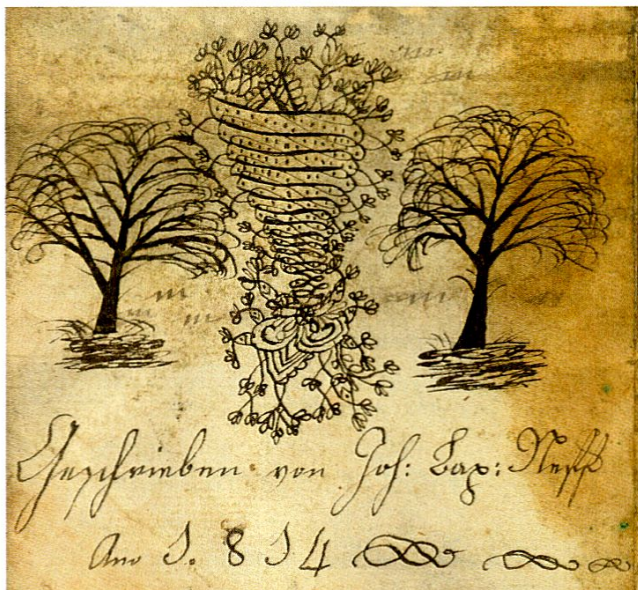 Geschrieben von Joh: Bap: Neff
Ano 1. 8 1 4